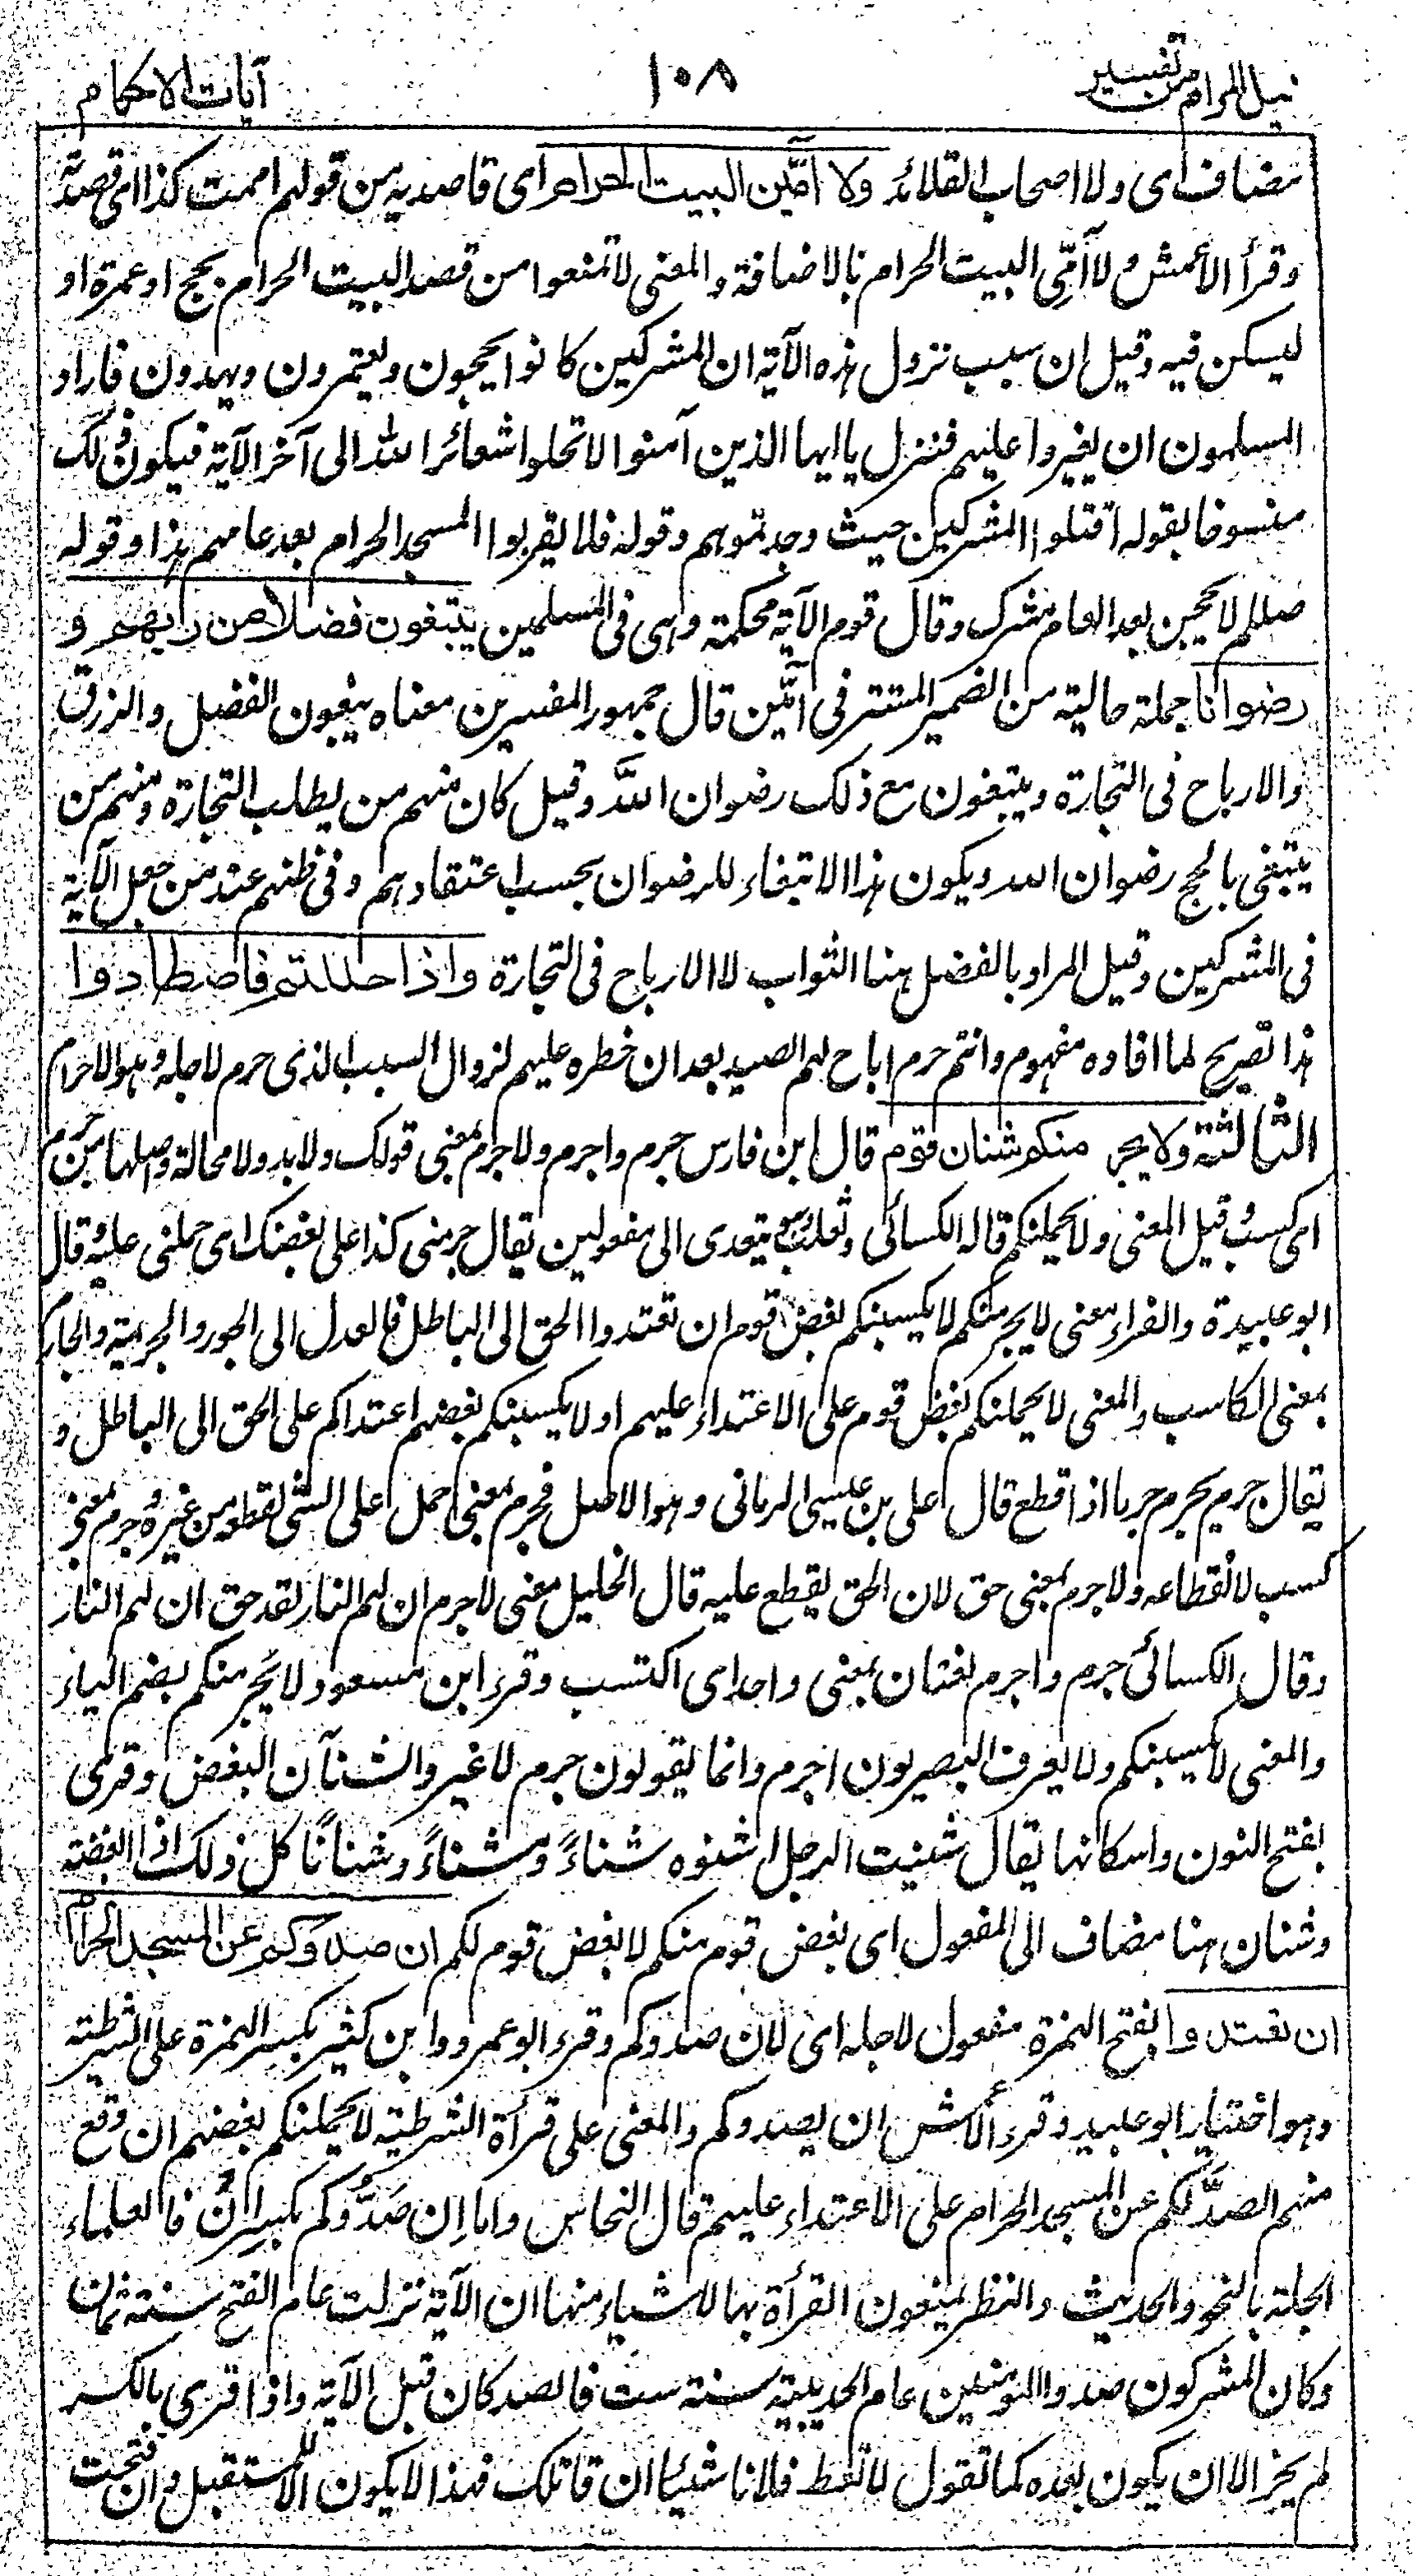 نيل المرام من تفسير
١٠٨
آيات الاحكام
مضاف اى ولا اصحاب القلائد ولا آمّين البيت الحرام اى قاصديه من قولهم اممت كذا اى قصدته
وقرأ الأعمش ولا آمّي البيت الحرام بالاضافة والمعنى لا تمنعوا من قصد البيت الحرام بحج او عمرة او
ليسكن فيه وقيل ان سبب نزول هذه الآية ان المشركين كانوا يحجون ويعتمرون ويهدون فاراد
المسلمون ان يغيروا عليهم فنزل يا ايها الذين آمنوا لا تحلوا شعائر الله الى آخر الآية فيكون ذلك
منسوخا بقوله اقتلوا المشركين حيث وجدتموهم وقوله فلا يقربوا المسجد الحرام بعد عامهم هذا وقوله
صللم لا يحجن بعد العام مشرك وقال قوم الآية محكمة وهى فى المسلمين يبتغون فضلا من ربهم و
رضوانا جملة حالية من الضمير المستتر فى آمّين قال جمهور المفسرين معناه يبغون الفضل والرزق
والارباح فى التجارة ويبتغون مع ذلك رضوان الله وقيل كان منهم من يطلب التجارة ومنهم من
يبتغى بالحج رضوان الله ويكون هذا الابتغاء للرضوان بحسب اعتقادهم وفى ظنهم عند من جعل الآية
فى المشركين وقيل المراد بالفضل هنا الثواب لا الارباح فى التجارة واذا حللتم فاصطادوا
هذا تصريح لما افاده مفهوم وانتم حرم اباح لهم الصيد بعد ان حظره عليهم لزوال السبب الذى حرم لاجله وهو الاحرام
الثالثة ولا يجرمنكم شنان قوم قال ابن فارس جرم واجرم ولا جرم بمعنى قولك ولا بد ولا محالة واصلها من جرم
اى كسب وقيل المعنى ولا يحملنكم قاله الكسائى وثعلب وهو يتعدى الى مفعولين يقال جرمنى كذا على بغضك اى حملنى عليه وقال
ابو عبيدة والفراء معنى لا يجرمنكم لا يكسبنكم بغض قوم ان تعتدوا الحق الى الباطل والعدل الى الجور والجريمة والجارم
بمعنى الكاسب والمعنى لا يحملنكم بغض قوم على الاعتداء عليهم او لا يكسبنكم بغضهم اعتداكم على الحق الى الباطل و
يقال جرم يجرم جرما اذا قطع قال على بن عيسى الرمانى وهو الاصل فجرم بمعنى حمل على الشئ لقطعه من غيره وجرم بمعنى
كسب لانقطاعه ولا جرم بمعنى حق لان الحق يقطع عليه قال الخليل معنى لا جرم ان لهم النار لقد حق ان لهم النار
وقال الكسائى جرم واجرم لغتان بمعنى واحد اى اكتسب وقرء ابن مسعود لا يُجرمنكم بضم الياء
والمعنى لا يكسبنكم ولا يعرف البصريون اجرم وانما يقولون جرم لا غير والشنآن البغض وقرئ
بفتح النون واسكانها يقال شنيت الرجل اشنوه شناءً ومشناءً وشنانًا كل ذلك اذا ابغضته
وشنان هنا مضاف الى المفعول اى بغض قوم منكم لا بغض قوم لكم ان صدوكم عن المسجد الحرام
ان تعتدوا بفتح الهمزة مفعول لاجله اى لان صدوكم وقرء ابو عمرو وابن كثير بكسر الهمزة على الشرطية
وهو اختيار ابو عبيد وقرء الأعمش ان يصدوكم والمعنى على قرأة الشرطية لا يحملنكم بغضهم ان وقع
منهم الصدّ لكم عن المسجد الحرام على الاعتداء عليهم قال النحاس واما اِن صَدُّوكم بكسر اِن فالعلماء
الجلة بالنحو والحديث والنظر يمنعون القرأة بها لاشياء منها ان الآية نزلت عام الفتح سنة ثمان
وكان المشركون صدوا المؤمنين عام الحديبية سنة ست فالصد كان قبل الآية واذا قرئ بالكسر
لم يجز الا ان يكون بعده كما تقول لا تعط فلانا شيئا ان قاتلك فهذا لا يكون الا للمستقبل وان فتحت